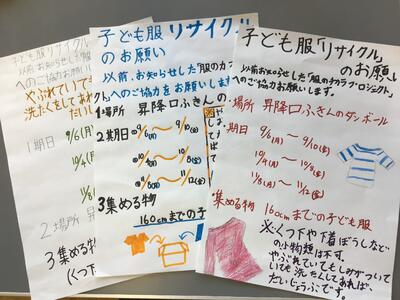 子ども服リサイクル
のお願い
以前、お知らせした
へのご協力お願い
やぶれていても
洗たくをしてあれば
1期日
9/6(月)
2場所
3集める物
(くつ下
子ども服リサイクル
のお願い
以前、お知らせした「服のカ
クト」へのご協力をお願いします
1場所 昇降口ふきん
2期日
9/6(月)〜9/10(金)
〜
〜11/12(金)
3集める物
160cmまでの子
子ども服「リサイクル」
のお願い
以前お知らせした「服のチカラプロジェクト」
へのご協力お願いします。
・場所 昇降口ふきんのダンボール
・期日
9/6(月)〜9/10(金)
10/4(月)〜10/8(金)
11/8(月)〜11/12(金)
・集める物 160cmまでの子ども服
※くつ下や下着ぼうしなど
の小物類は不可。
やぶれていてもしみがついて
いても洗たんしてあれば、
だいじょうぶです。